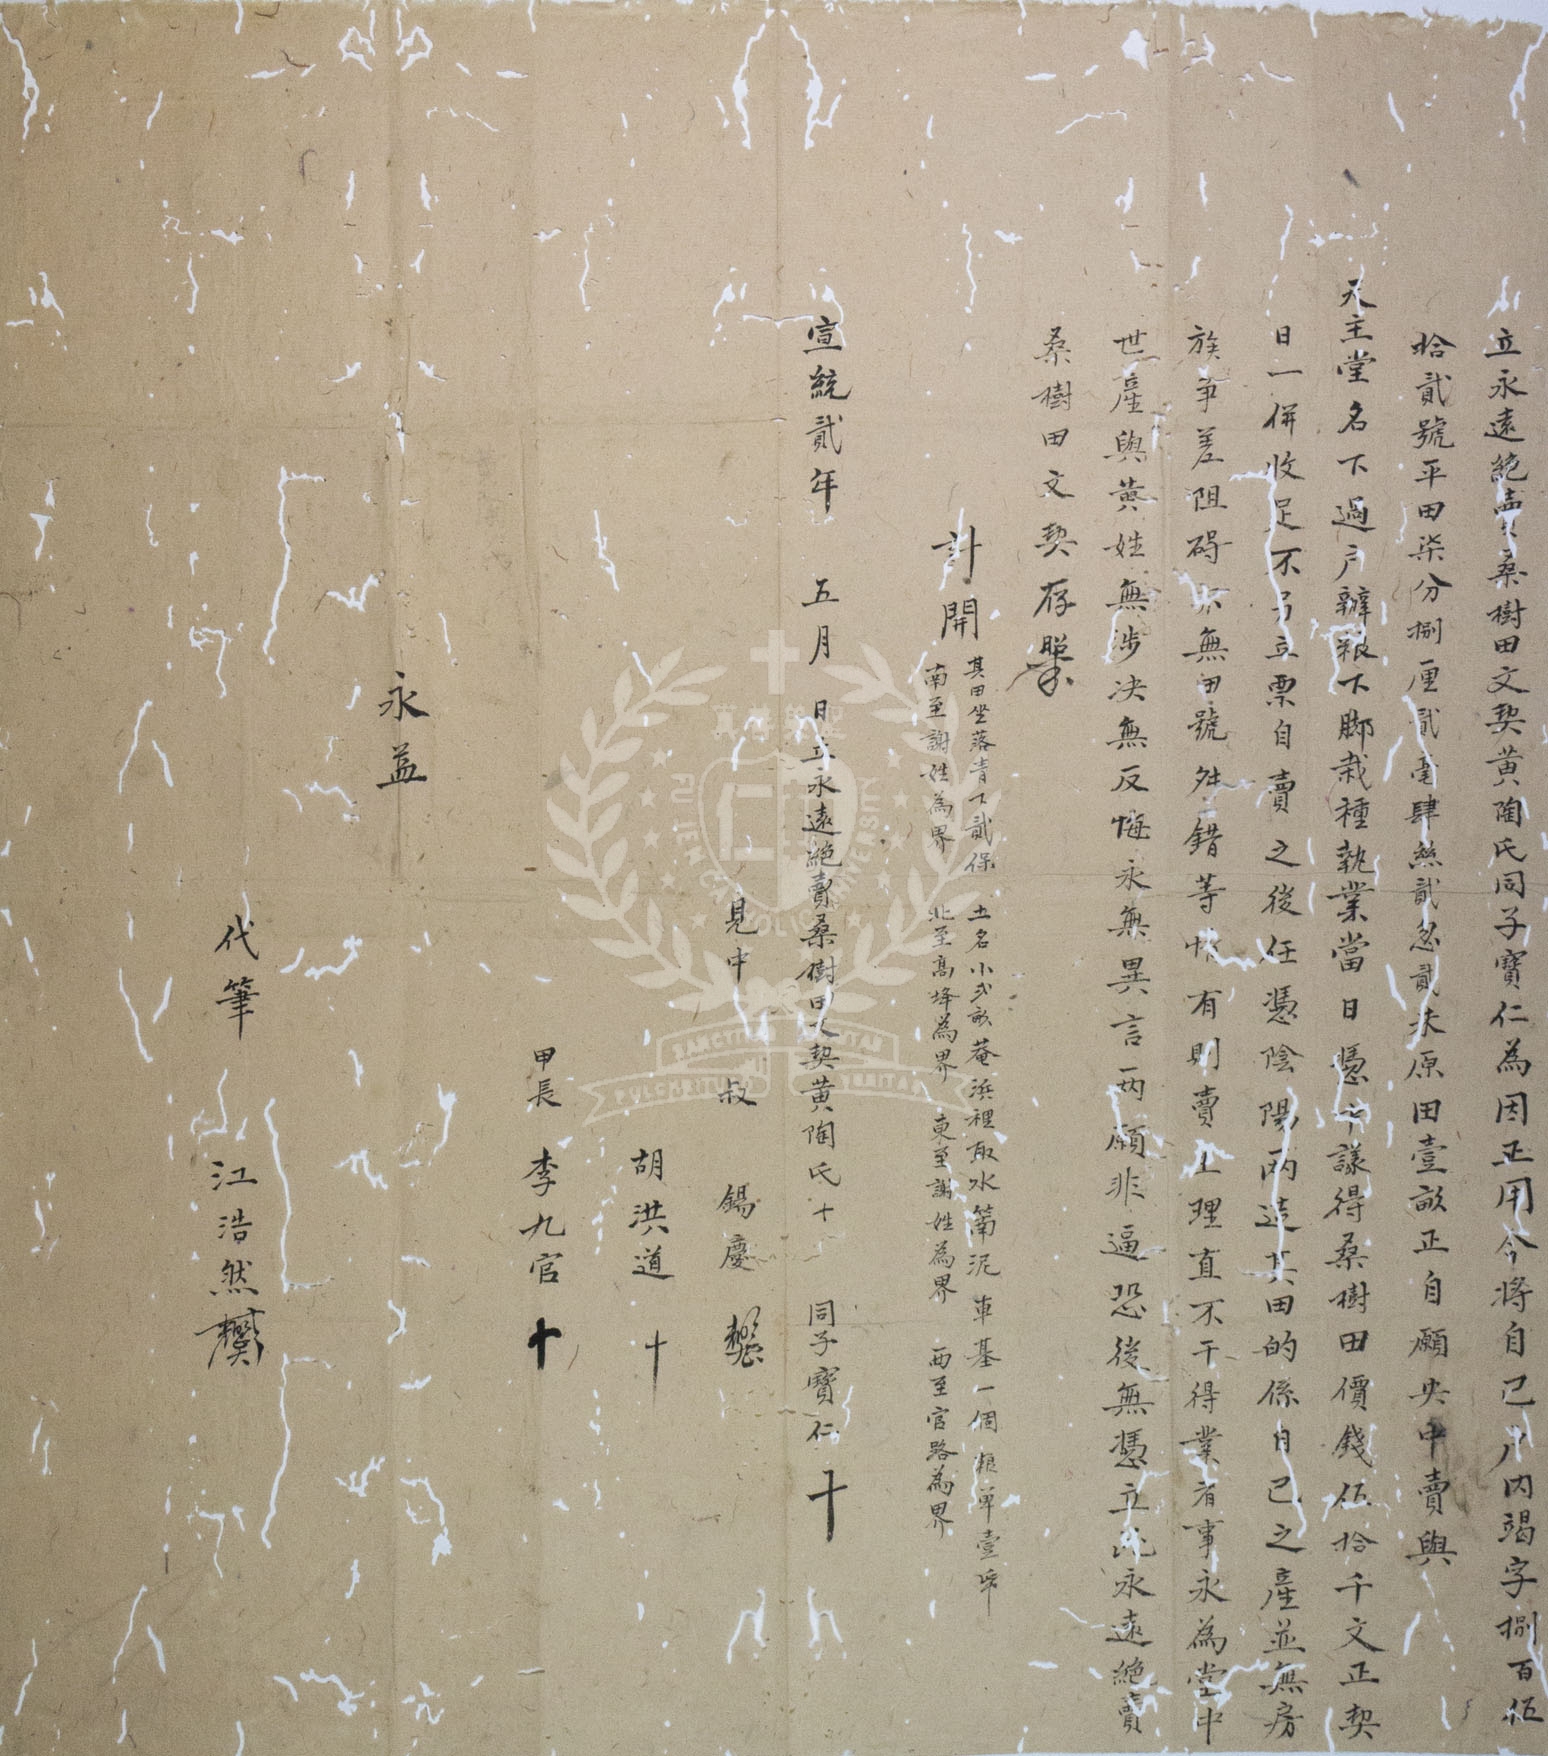 立永遠絕賣桑樹田文契黃陶氏同子寶仁為因正用今將自己戶內竭字捌百伍
拾貳號平田柒分捌厘貳毫肆絲貳忽貳未原田壹畝正自願央中賣與
天主堂名下過戶辦粮下脚栽種執業當日憑中議得桑樹田價錢伍拾千文正契
日一併收足不另立票自賣之後任憑陰陽兩造其田的係自己之產並無房
族爭差阻碍亦無田號舛錯等情有則賣主理直不干得業者事永為堂中
世產與黃姓無涉決無反悔永無異言兩願非逼恐後無憑立此永遠絕賣
桑樹田文契存照
計開
其田坐落青下貳保 土名小弍畝菴浜裡取水罱泥車基一個粮單壹帋
南至謝姓為界 北至高墳為界 東至謝姓為界 西至官路為界
宣統貳年 五月 日立永遠絕賣桑樹田文契黃陶氏十 同子寶仁十
見中 叔 錫慶
胡洪道十
甲長 李九官十
永益
代筆 江浩然
SANCTITAS VERITAS
PULCHRITUDO BONITAS
FU JEN CATHOLIC UNIVERSITY
真善美聖